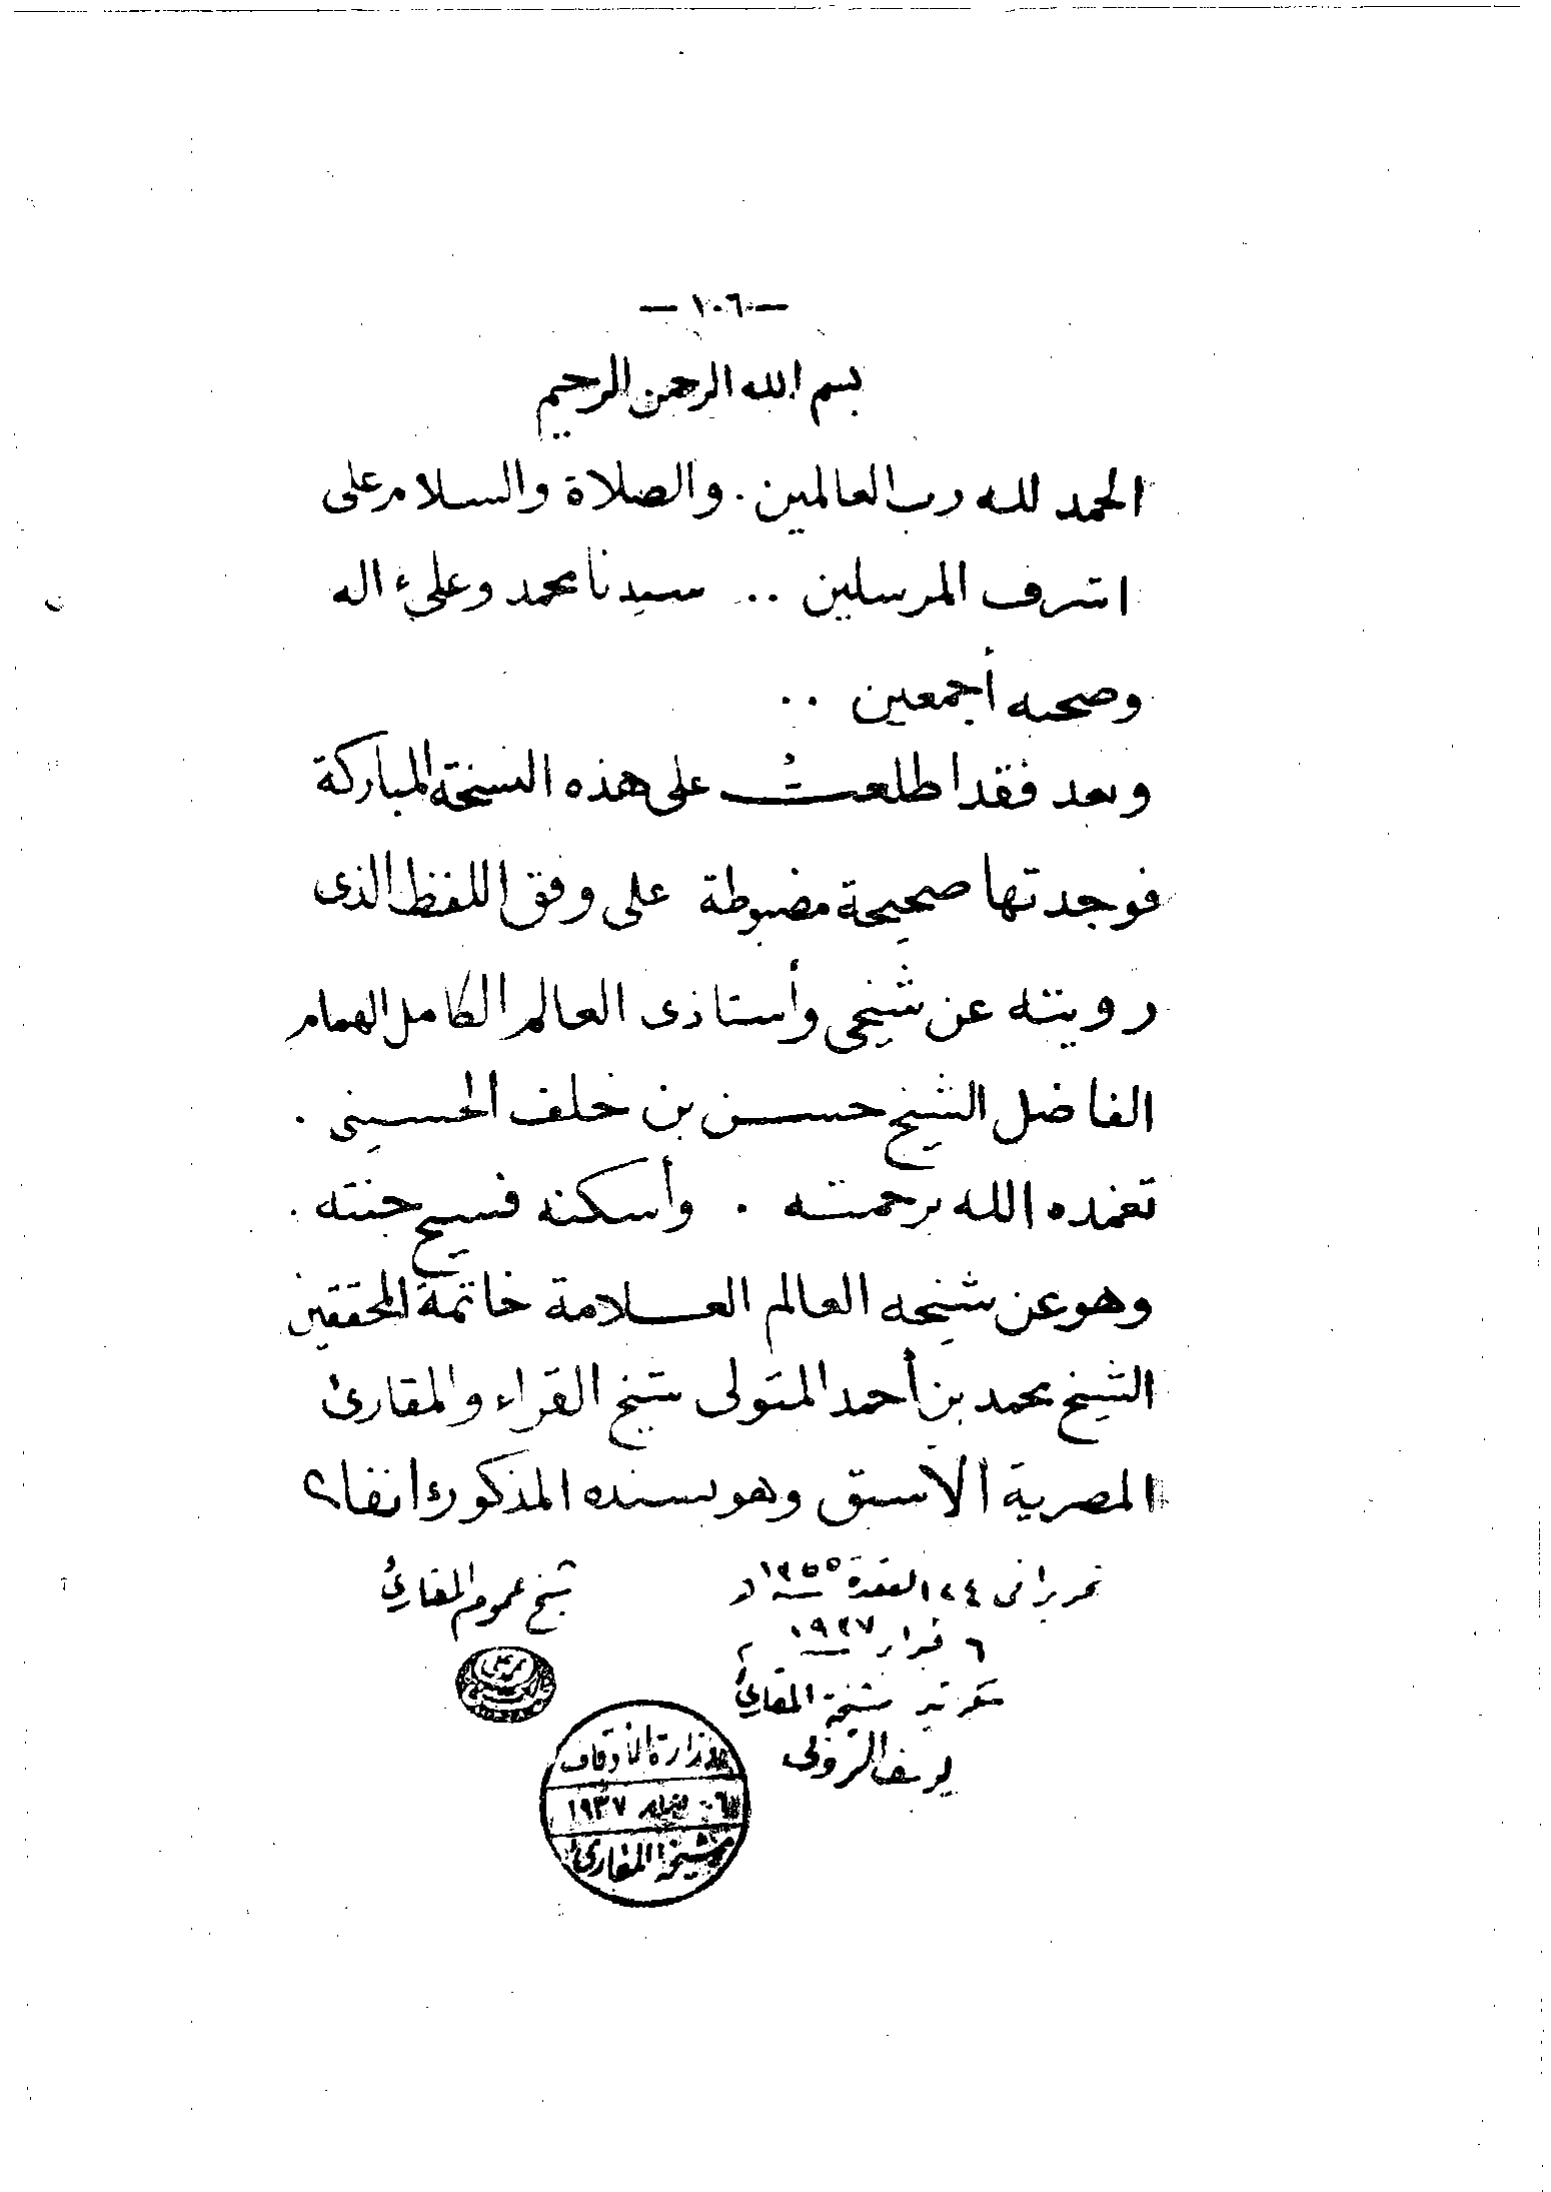 — ١٠٦ —
بسم الله الرحمن الرحيم
الحمد لله رب العالمين . والصلاة والسلام على
اشرف المرسلين .. سيدنا محمد وعلىٰ ءاله
وصحبه أجمعين ..
وبعد فقد اطلعتُ على هذه النسخة المباركة
فوجدتها صحيحة مضبوطة على وفق اللفظ الذى
رويته عن شيخى وأستاذى العالم الكامل الهمام
الفاضل الشيخ حسن بن خلف الحسينى .
تغمده الله برحمته . وأسكنه فسيح جنته .
وهو عن شيخه العالم العلامة خاتمة المحققين
الشيخ محمد بن أحمد المتولى شيخ القراء والمقارئ
المصرية الأسبق وهو بسنده المذكور ءانفا
تحريرا فى ٢٤ القعدة ١٣٥٥ هـ
شيخ عموم المقارئ
٦ فبراير ١٩٣٧ م
سكرتير مشيخة المقارئ
يوسف
وزارة الأوقاف
٠٦ فبراير ١٩٣٧
مشيخة المقارئ